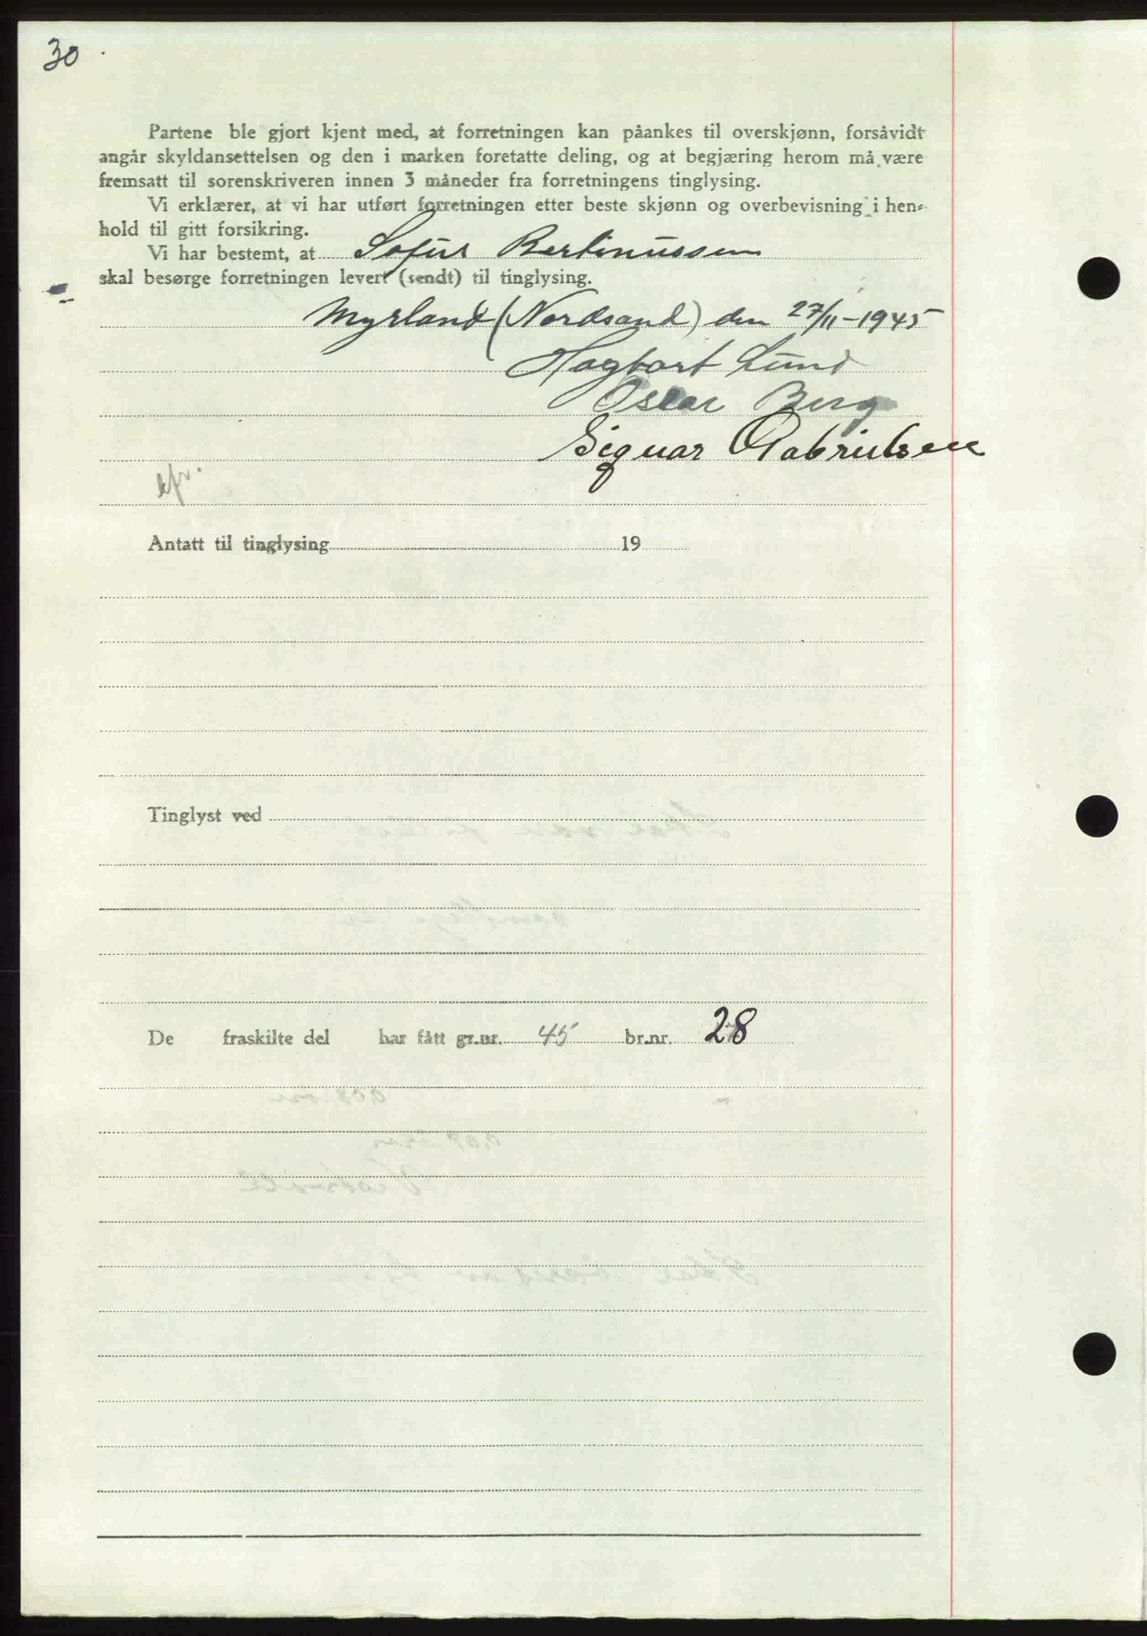 30
Partene ble gjort kjent med, at forretningen kan påankes til overskjønn, forsåvidt
angår skyldansettelsen og den i marken foretatte deling, og at begjæring herom må være
fremsatt til sorenskriveren innen 3 måneder fra forretningens tinglysing.
Vi erklærer, at vi har utført forretningen etter beste skjønn og overbevisning i hen-
hold til gitt forsikring.
Vi har bestemt, at Sofus Bertinussen
skal besørge forretningen levert (sendt) til tinglysing.
Myrland (Nordsand) den 27/11-1945
Hagbart Lund
Oscar Berg
Signar Gabrielsen
Antatt til tinglysing 19
Tinglyst ved
De fraskilte del har fått gr.nr. 45 br.nr. 28